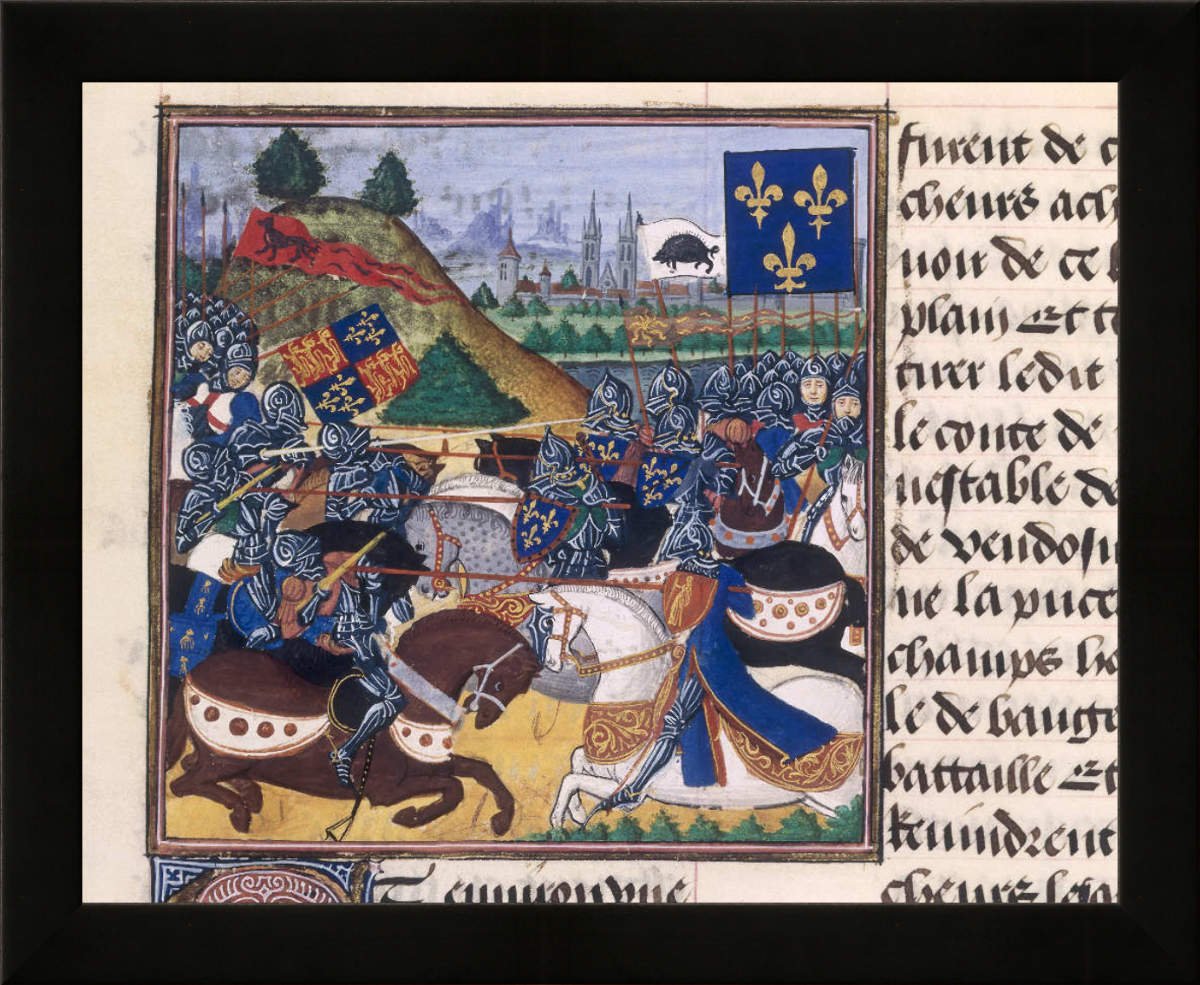 furent de c
cheurs ach
uoir de ce b
plain Et te
tirer ledit
le conte de
nestable de
de vendosm
ne la puce
champs ho
le de bauge
battaille Et
Reuindrent
cheurs les a
Tenuiron vne